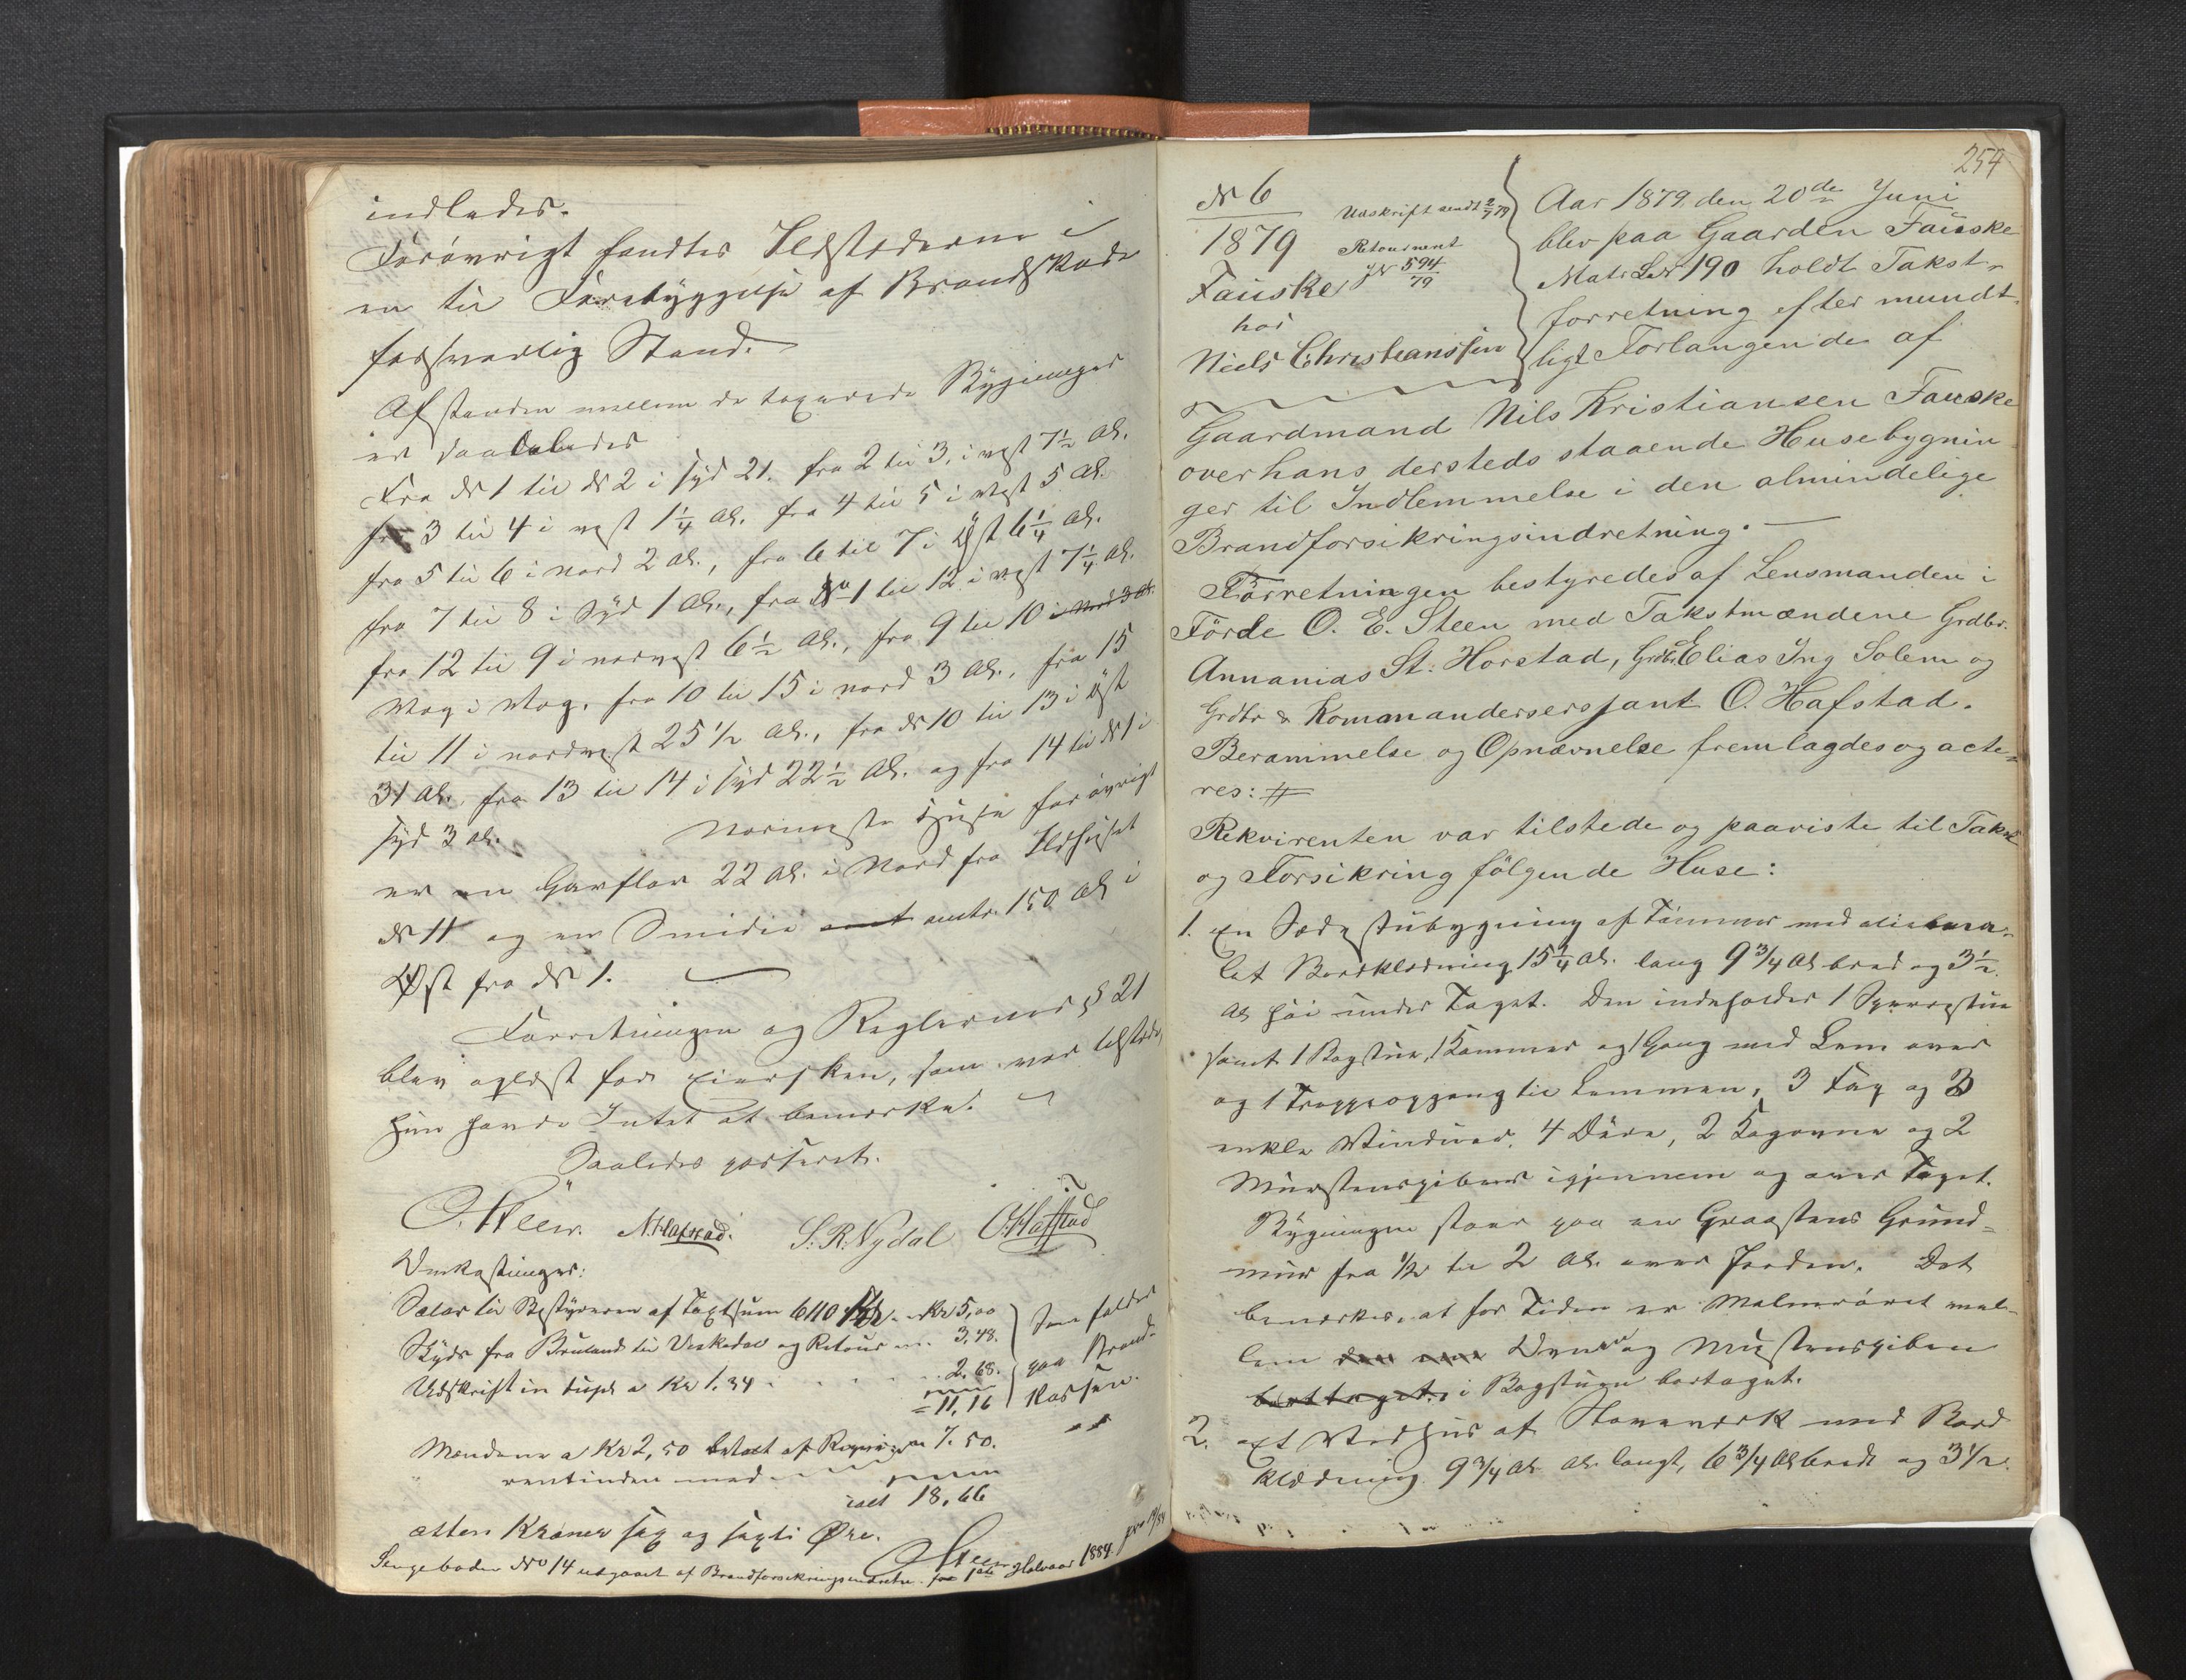 indledes.
Forøvrigt fandtes Ildstederne i
en til Forebyggelse af Brandskade
forsvarlig Stand.
Afstanden mellem de taxerede Bygninger
er saaledes
Fra № 1 til № 2 i Syd 21. fra 2 til 3, i vest 7 1/2 Al.
fra 3 til 4 i vest 1 1/4 Al. fra 4 til 5 i vest 5 Al.
fra 5 til 6 i nord 2 Al., fra 6 til 7 i Øst 6 1/4 Al.
fra 7 til 8 i Syd 1 Al., fra № 1 til 12 i vest 7 1/4 Al.
fra 12 til 9 i norvest 6 1/2 Al., fra 9 til 10 i Nord 3 Al.
Væg i Væg, fra 10 til 15 i nord 3 Al., fra 15
til 11 i nordvest 25 1/2 Al., fra № 10 til 13 i Øst
31 Al., fra 13 til 14 i Syd 22 1/2 Al. og fra 14 til № 1 i
Syd 3 Al. Nærmeste Huse forøvrigt
er en Havflor 22 Al. i Nord fra Ildhuset
№ 11 og en Smidie omtr. 150 Al i
Øst fra № 1.
Forretningen og Reglernes § 21
blev oplæst for Eiersken, som var tilstede,
hun havde Intet at bemærke.
Saaledes passeret.
O. Steen. A. Hafstad. S. R. Nydal O. Hafstad
Omkostninger:
Salær til Bestyreren af Taxtsum 6110 Kr. - Kr 5,00
Skyds fra Bruland til Viskedal og Retour 3,48.
Udskrift in duplo a Kr 1.34 . . . . 2,68.
= 11,16
som falder
paa Brand-
kassen.
Mændene a Kr 2,50 betalt af Rekvi- 7.50.
rentinden med
ialt 18,66
atten Kroner sex og sexti Øre.
O Steen
Sengeboden No 14 udgaaet af Brandforsikringsindretn. fra 1ste Halvaar 1884.
254
№ 6
1879
Fauske
hos
Niels Christianssen
Udskrift sendt 2/7 79
Retourneret
JN 594/79
Aar 1879 den 20de Juni
blev paa Gaarden Fauske
Matr. L.№ 190 holdt Takst-
forretning efter mundt-
ligt Forlangende af
Gaardmand Nils Kristiansen Fauske
over hans dersteds staaende Husebygnin
ger til Indlemmelse i den almindelige
Brandforsikringsindretning. —
Forretningen bestyredes af Lensmanden i
Förde O. E. Steen med Takstmændene Grdbr.
Annanias St. Horstad, Grdbr. Elias Ing Solem og
Grdbr & Kommandersersjant O. Hafstad.
Berammelse og Opnævnelse fremlagdes og acte-
res: #
Rekvirenten var tilstede og paaviste til Takst
og Forsikring fölgende Huse:
1. En Sædestubygning af Tømmer med oliema-
let Bordklædning 15 1/4 Al. lang 9 3/4 Al bred og 3 1/2
Al høi under Taget. Den indeholder 1 Sperrestue
samt 1 Bagstue, 1 Kammer og 1 Gang med Lem over
og 1 Trappeopgang til Lemmen, 3 Fag og 3
enkle Vinduer, 4 Døre, 2 Kagovne og 2
Murstenspiber igjennem og over Taget.
Bygningen staar paa en Graastens Grund-
mur fra 1/2 til 2 Al. over Jorden. Det
bemærkes, at for Tiden er Malmrøret mel-
lem Ovnen og Murstenspiben
borttaget i Bagstuen bortaget.
2. Et Vedhus af Staverværk med Bord
klædning 9 3/4 Al. Al. langt, 6 3/4 Al bredt og 3 1/2.